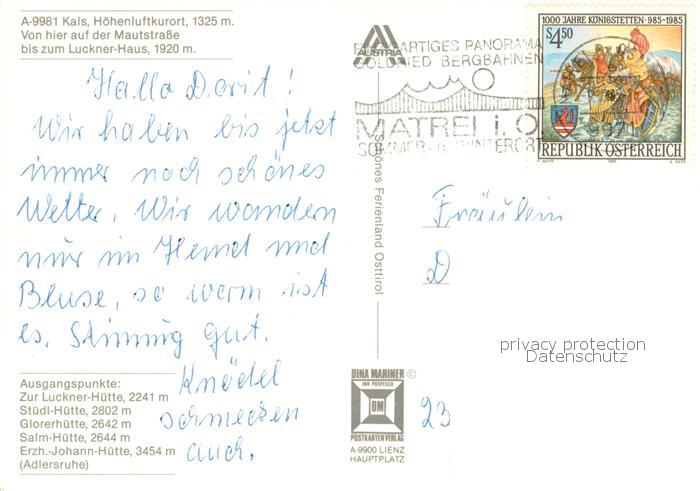 A-9981 Kals, Höhenluftkurort, 1325 m.
Von hier auf der Mautstraße
bis zum Luckner-Haus, 1920 m.
Hallo Dorit!
Wir haben bis jetzt
immer noch schönes
Wetter. Wir wandern
nur im Hemd und
Bluse, so warm ist
es. Stimmung gut.
Knödel
schmecken
auch.
Ausgangspunkte:
Zur Luckner-Hütte, 2241 m
Stüdl-Hütte, 2802 m
Glorerhütte, 2642 m
Salm-Hütte, 2644 m
Erzh.-Johann-Hütte, 3454 m
(Adlersruhe)
Schönes Ferienland Osttirol
AUSTRIA
PANORAMA
GOLDRIED BERGBAHNEN
MATREI i. O.
SOMMER- WINTERORT
1000 JAHRE KÖNIGSTETTEN · 985-1985
S 4.50
REPUBLIK ÖSTERREICH
1985
Fräulein
D
23
DINA MARINER ©
DM
POSTKARTENVERLAG
A-9900 LIENZ
HAUPTPLATZ
privacy protection
Datenschutz